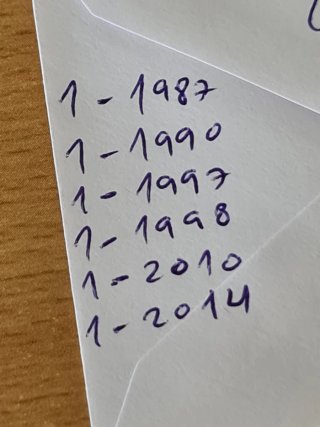 1 - 1987
1 - 1990
1 - 1997
1 - 1998
1 - 2010
1 - 2014